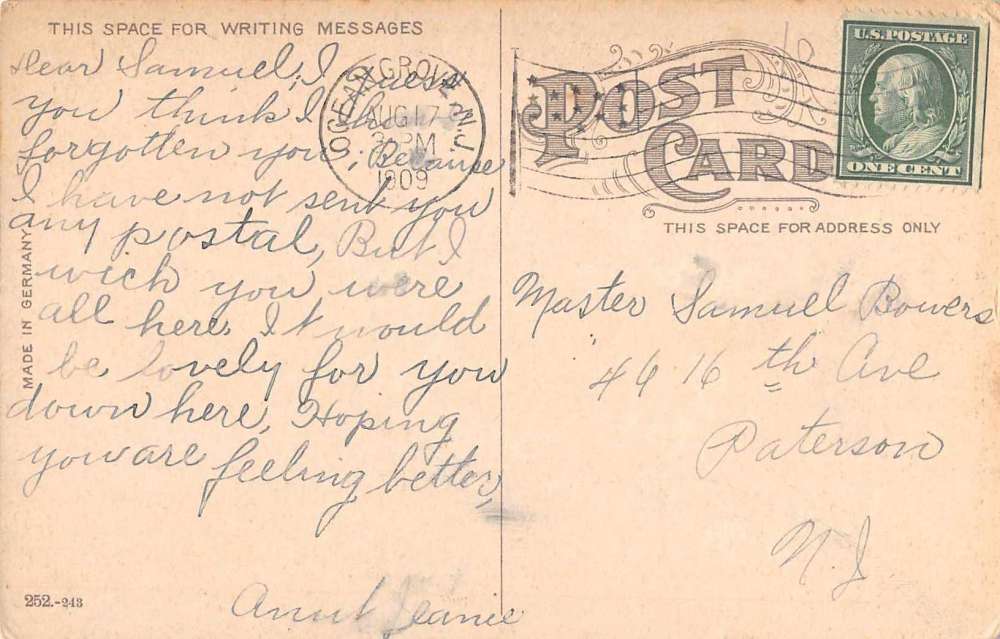 THIS SPACE FOR WRITING MESSAGES
Dear Samuel, I guess
you think I have
forgotten you, Because
I have not sent you
any postal, But I
wich you were
all here. It would
be lovely for you
down here, Hoping
you are feeling better,
Aunt Jeanie
MADE IN GERMANY
252.-243
OCEAN GROVE N.J.
AUG 17
PM
1909
POST
CARD
U.S. POSTAGE
ONE CENT
10
THIS SPACE FOR ADDRESS ONLY
Master Samuel Bowers
46 16 th Ave
Paterson
N. J